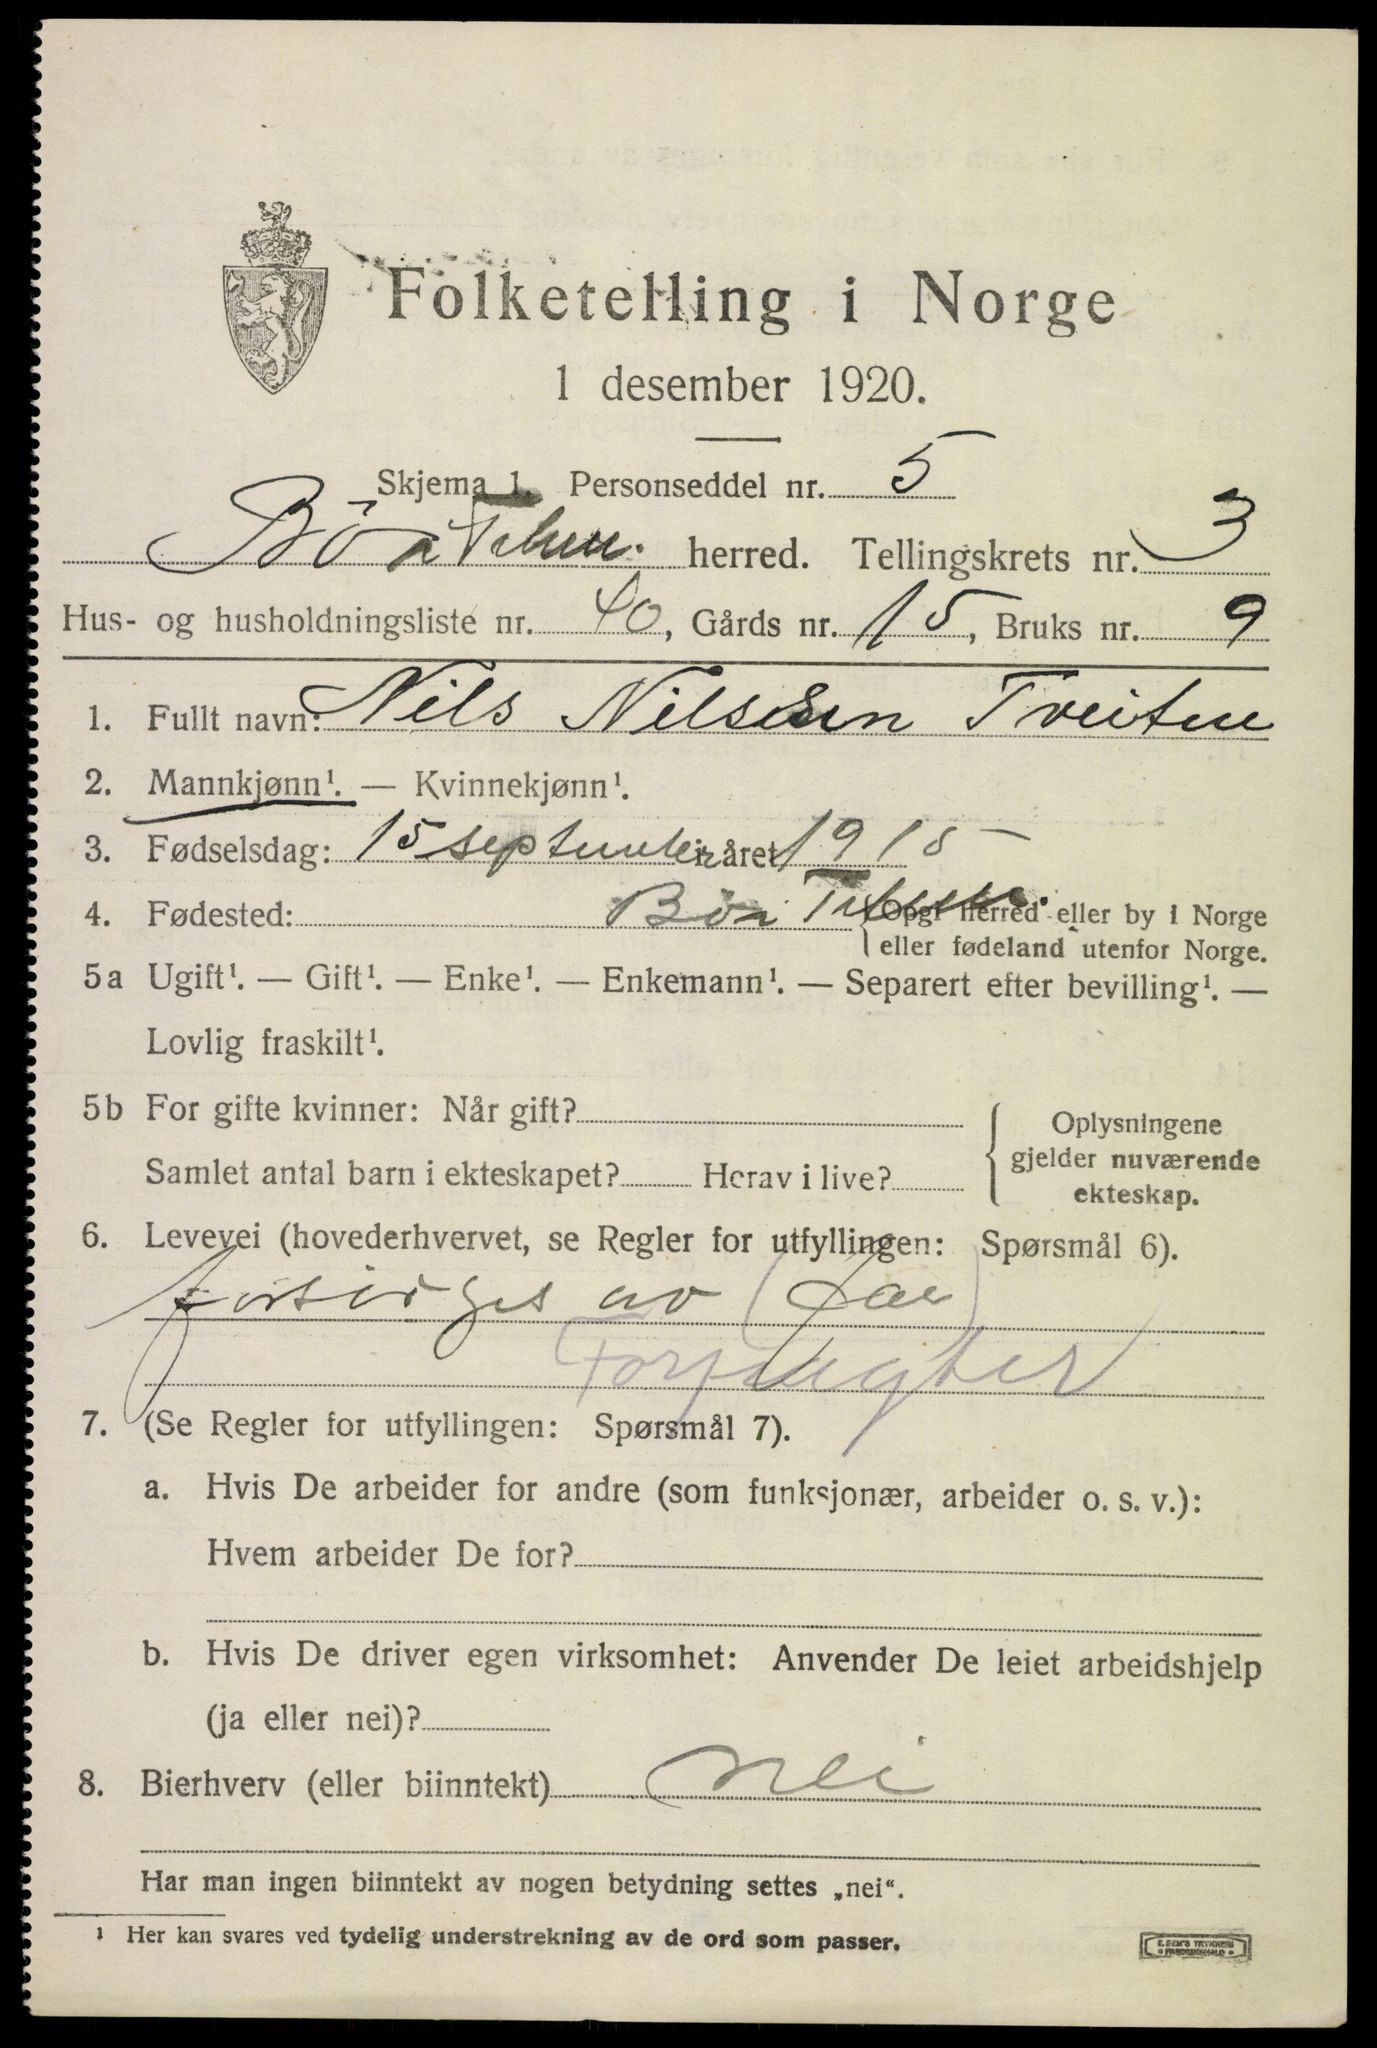 Folketelling i Norge
1 desember 1920.
Skjema 1. Personseddel nr. 5
Bö i Telem. herred. Tellingskrets nr. 3
Hus- og husholdningsliste nr. 40, Gårds nr. 15, Bruks nr. 9
1. Fullt navn: Nils Nilssen Tveiten
2. Mannkjønn¹. — Kvinnekjønn¹.
3. Fødselsdag: 15 september i året 1915
4. Fødested: Bö i Telem. {Opgi herred eller by i Norge
eller fødeland utenfor Norge.
5a Ugift¹. — Gift¹. — Enke¹. — Enkemann¹. — Separert efter bevilling¹. —
Lovlig fraskilt¹.
5b For gifte kvinner: Når gift?
Samlet antal barn i ekteskapet? Herav i live?
Oplysningene
gjelder nuværende
ekteskap.
6. Levevei (hovederhvervet, se Regler for utfyllingen: Spørsmål 6).
forsörges av (Far)
Forpagter
7. (Se Regler for utfyllingen: Spørsmål 7).
a. Hvis De arbeider for andre (som funksjonær, arbeider o. s. v.):
Hvem arbeider De for?
b. Hvis De driver egen virksomhet: Anvender De leiet arbeidshjelp
(ja eller nei)?
8. Bierhverv (eller biinntekt) nei
Har man ingen biinntekt av nogen betydning settes „nei“.
¹ Her kan svares ved tydelig understrekning av de ord som passer.
E. SEM'S TRYKKERI
FREDRIKSHALD